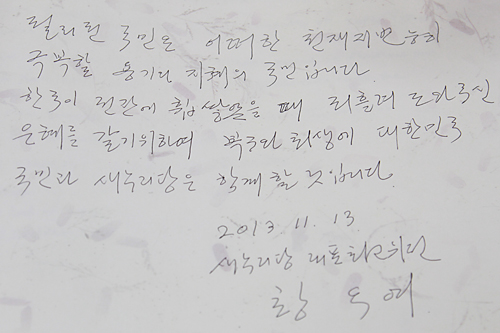 필리핀 국민은 어떠한 천재지변 능히
극복할 용기와 지혜의 국민입니다.
한국이 전란에 휩쌓였을 때 피흘려 도와주신
은혜를 갚기위하여 복구와 회생에 대한민국
국민과 새누리당은 함께 할 것입니다.
2013. 11. 13
새누리당 대표최고위원
황 우 여